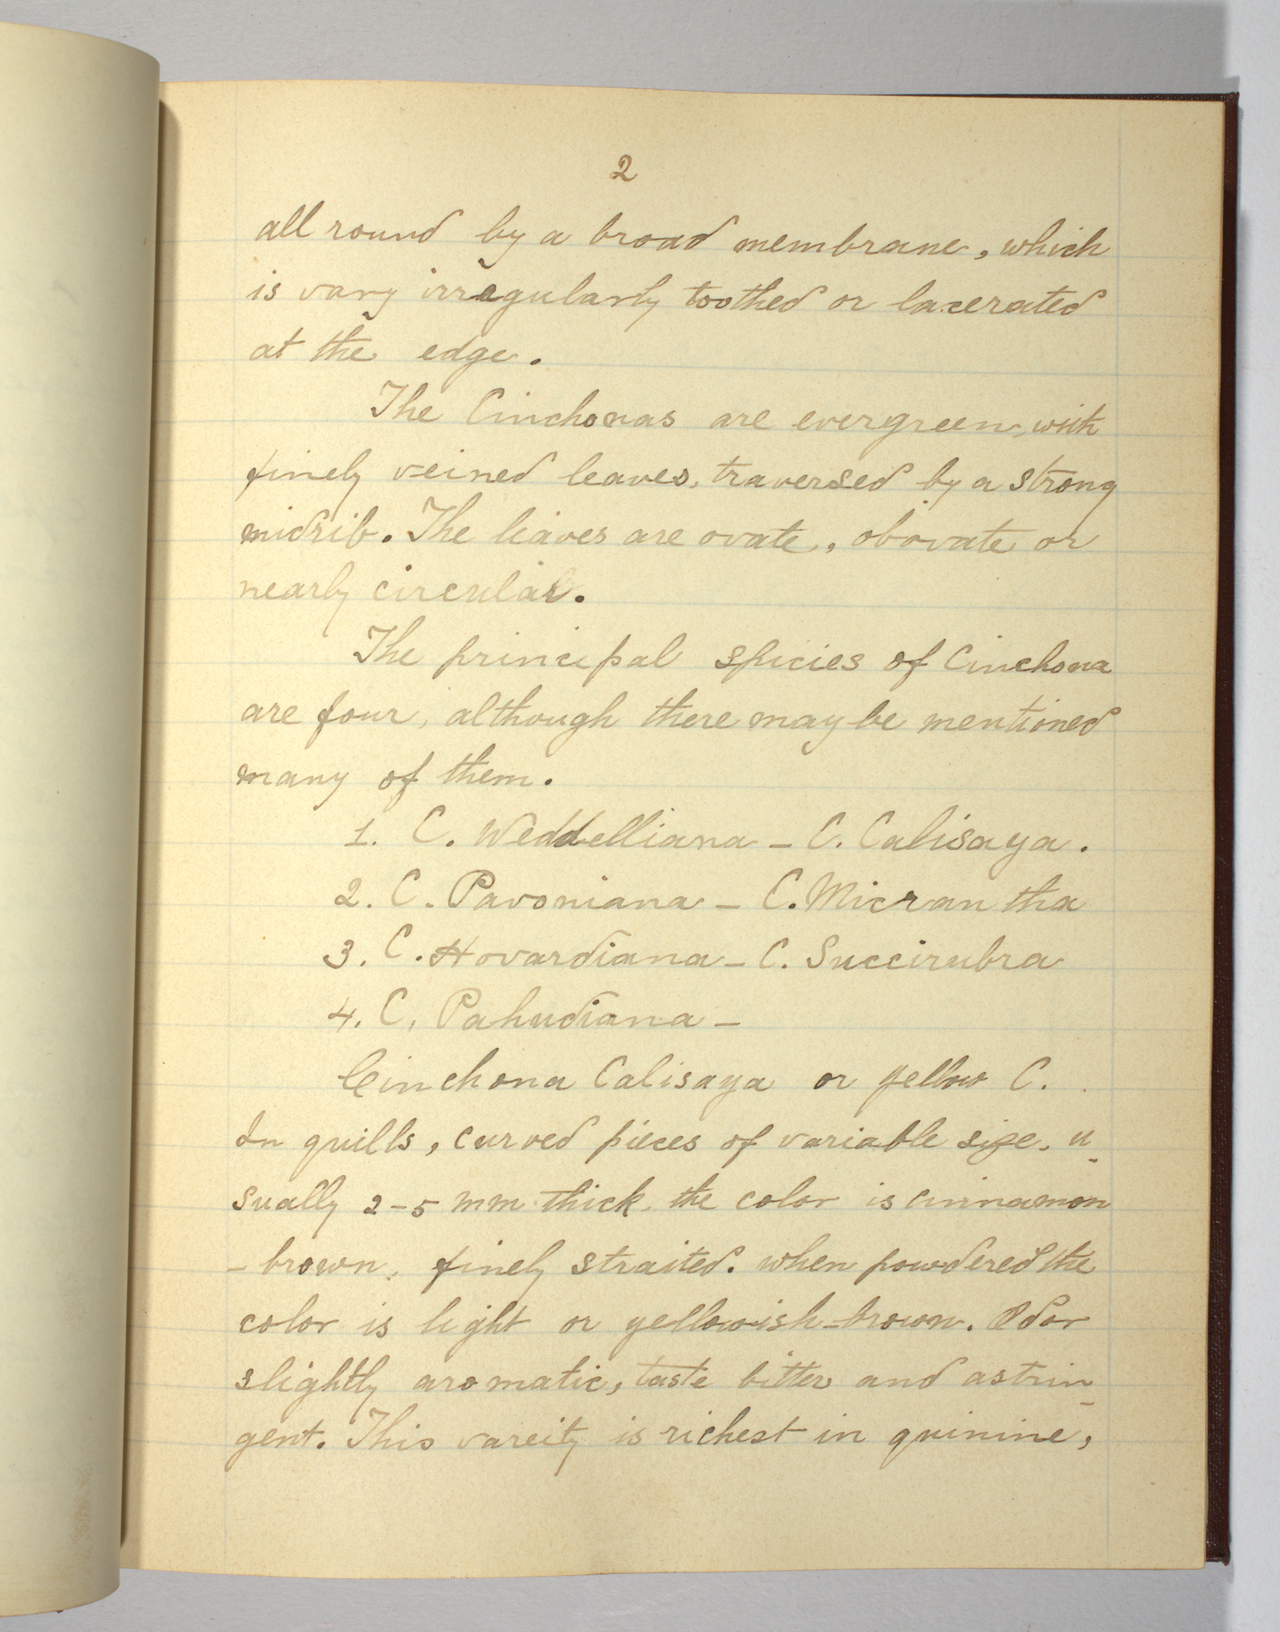 2
all round by a broad membrane, which
is vary irregularly toothed or lacerated
at the edge.
The Cinchonas are evergreen, with
finely veined leaves, traversed by a strong
midrib. The leaves are ovate, obovate or
nearly circular.
The principal species of Cinchona
are four, although there may be mentioned
many of them.
1. C. Weddelliana – C. Calisaya.
2. C. Pavoniana – C. Micrantha
3. C. Hovardiana – C. Succirubra
4. C. Pahudiana –
Cinchona Calisaya or yellow C.
In quills, curved pieces of variable size. u-
sually 2–5 mm thick. the color is cinnamon
-brown, finely straited. when powdered the
color is light or yellowish-brown. Odor
slightly aromatic, taste bitter and astrin-
gent. This vareity is richest in quinine,